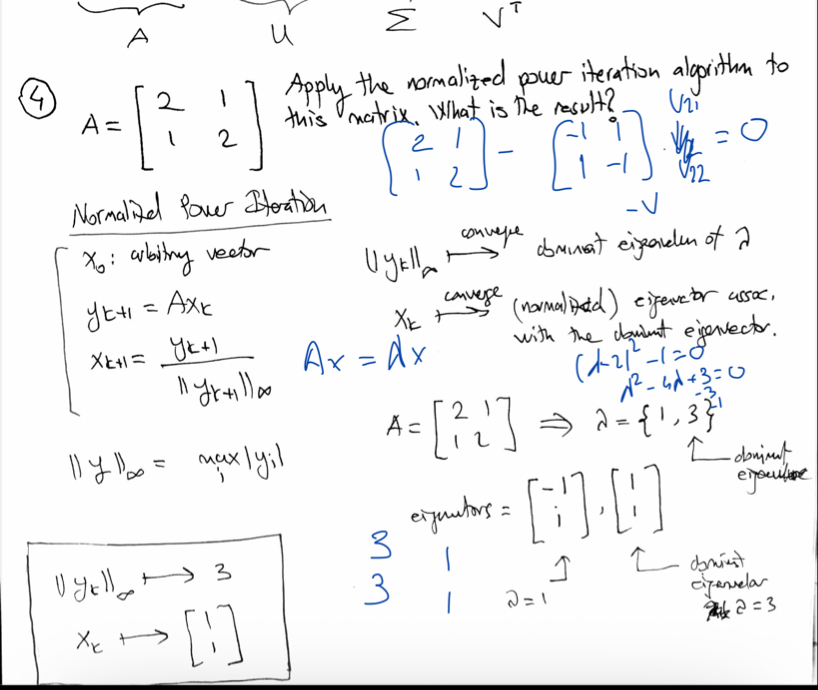 A U Σ V^T
④ A = [2 1; 1 2] Apply the normalized power iteration algorithm to
this matrix. What is the result?
[2 1; 1 2] - [-1 1; 1 -1] V21 V22 = 0
-V
Normalized Power Iteration
x_0: arbitrary vector
y_{k+1} = Ax_k
x_{k+1} = y_{k+1} / ||y_{k+1}||_∞
||y||_∞ = max_i |y_i|
||y_k||_∞ ↦ converge dominant eigenvalue of λ
x_k ↦ converge (normalized) eigenvector assoc.
with the dominant eigenvector.
Ax = λx
(λ-2)^2 - 1 = 0
λ^2 - 4λ + 3 = 0
-3 -1
A = [2 1; 1 2] ⇒ λ = {1, 3}
dominant
eigenvalue
eigenvectors = [-1; 1], [1; 1]
λ = 1
dominant
eigenvector
λ = 3
3 1
3 1
||y_k||_∞ ↦ 3
x_k ↦ [1; 1]